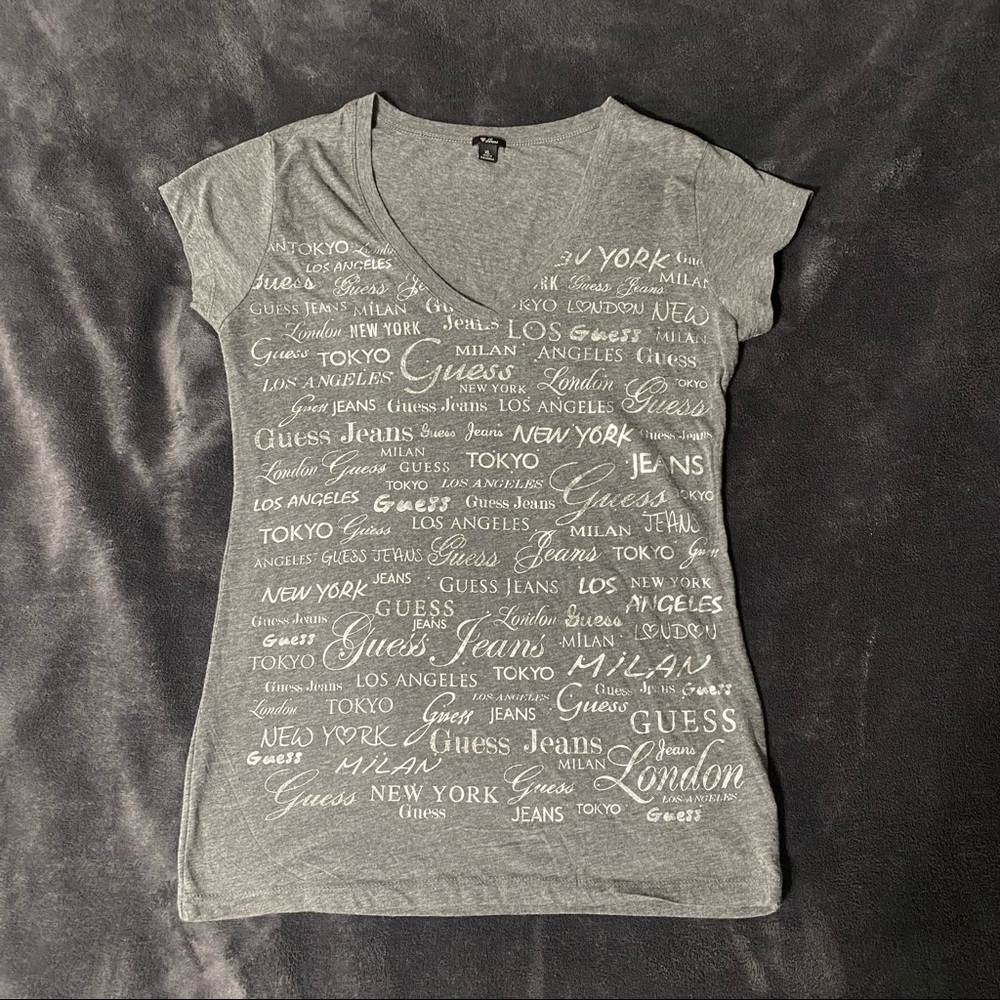 TOKYO London NEW YORK
LOS ANGELES MILAN
Guess Guess Guess Jeans
GUESS JEANS MILAN LONDON NEW
London NEW YORK Jeans LOS Guess MILAN
Guess TOKYO Guess MILAN ANGELES Guess
LOS ANGELES NEW YORK London TOKYO
Guess JEANS Guess Jeans LOS ANGELES Guess
Guess Jeans Guess Jeans NEW YORK Guess Jeans
MILAN
London Guess GUESS TOKYO JEANS
TOKYO LOS ANGELES Guess
LOS ANGELES Guess Guess Jeans
TOKYO Guess LOS ANGELES MILAN JEANS
ANGELES GUESS JEANS Guess Jeans TOKYO Guess
NEW YORK JEANS GUESS JEANS LOS NEW YORK
GUESS ANGELES
Guess Jeans JEANS London Guess LONDON
Guess Guess Jeans MILAN
TOKYO LOS ANGELES TOKYO MILAN
Guess Jeans LOS ANGELES Guess Guess Jeans Guess
London TOKYO Guess JEANS GUESS
NEW YORK Guess Jeans Jeans
Guess MILAN MILAN London
Guess NEW YORK Guess LOS ANGELES
Guess JEANS TOKYO Guess